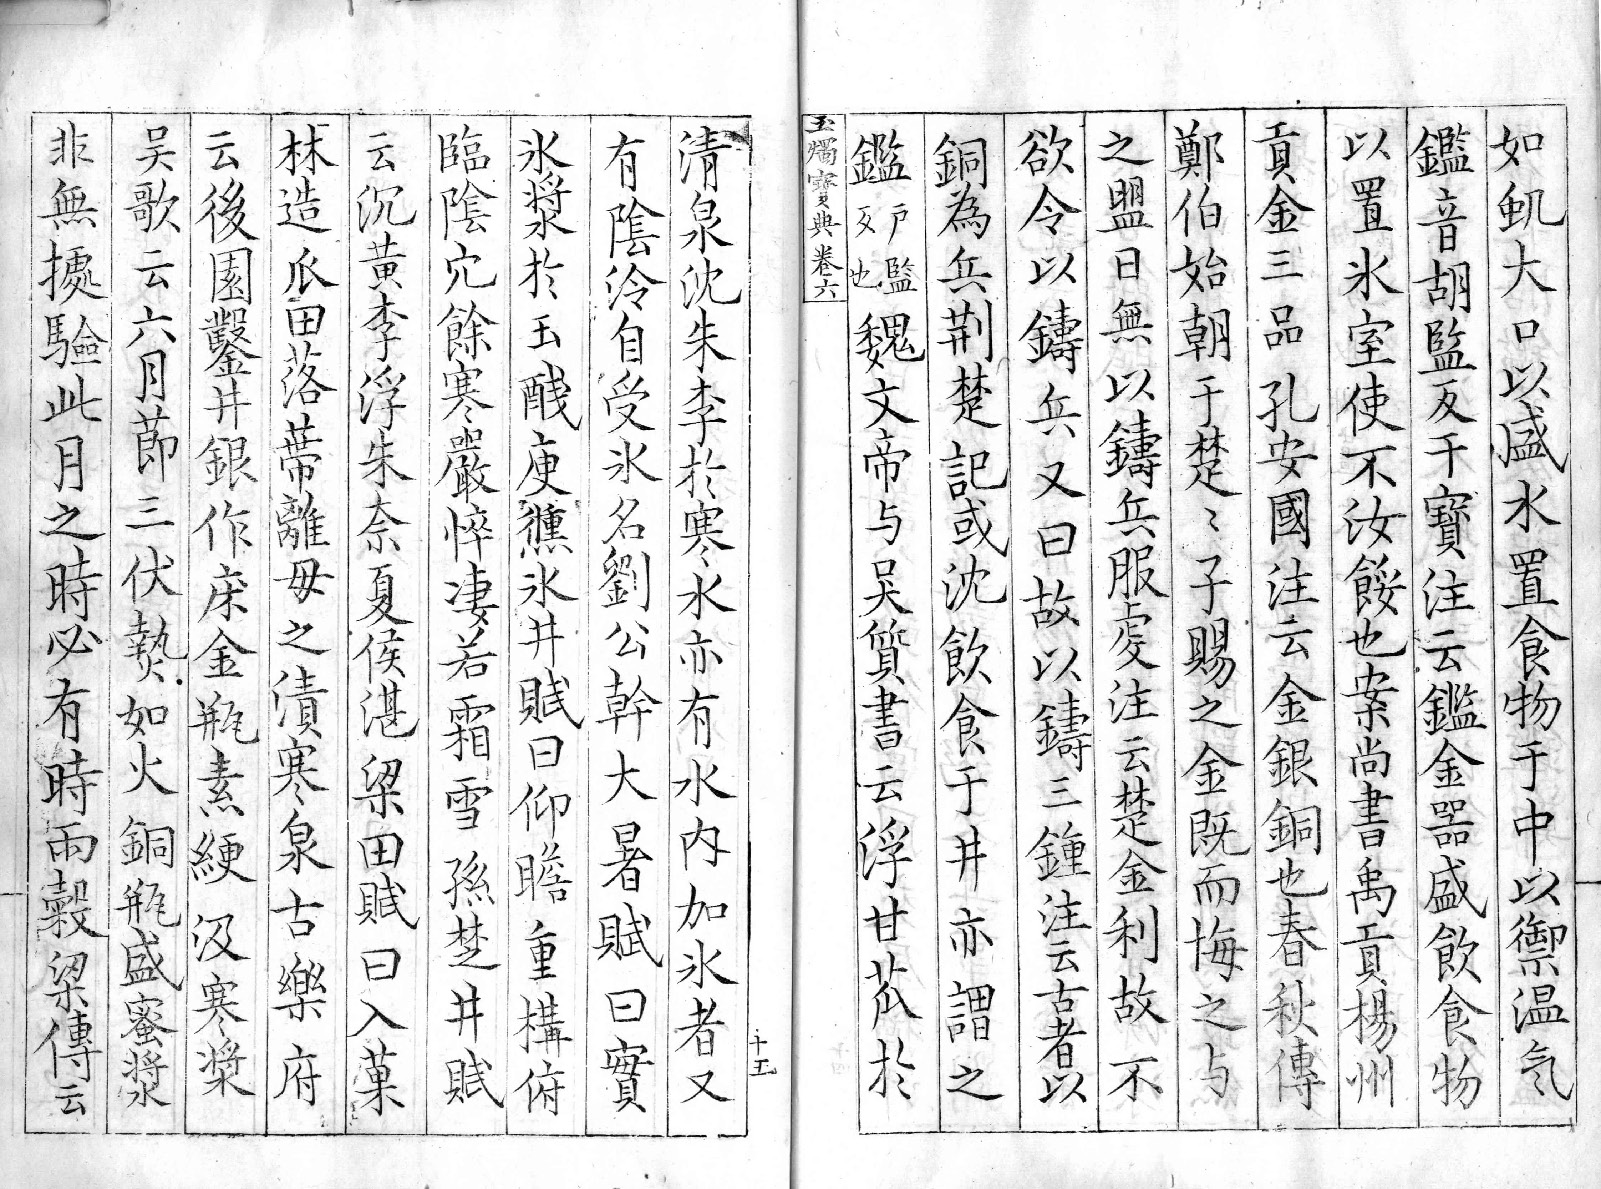 如虬大口以盛水置食物于中以禦温気
鑑音胡監反干寶注云鑑金器盛飲食物
以置氷室使不汝餒也案尚書禹貢楊州
貢金三品孔安國注云金銀銅也春秋傳
鄭伯始朝于楚〻子賜之金既而悔之与
之盟曰無以鑄兵服虔注云楚金利故不
欲令以鑄兵又曰故以鑄三鍾注云古者以
銅為兵荆楚記或沈飲食于井亦謂之
鑑戸監反也魏文帝与吴質書云浮甘苽於
玉燭寶典卷六
清泉沈朱李於寒水亦有水内加氷者又
十五
有陰泠自受氷名劉公幹大暑賦曰實
氷漿於玉醆庾儵氷井賦曰仰瞻重構俯
臨陰穴餘寒嚴悴凄若霜雪孫楚井賦
云沉黄李浮朱奈夏侯湛梁田賦曰入菓
林造爪田落蔕離毋之漬寒泉古樂府
云後園鑿井銀作床金瓶素綆汲寒漿
吴歌云六月莭三伏熱如火銅瓶盛蜜漿
非無攄驗此月之時必有時雨穀梁傳云